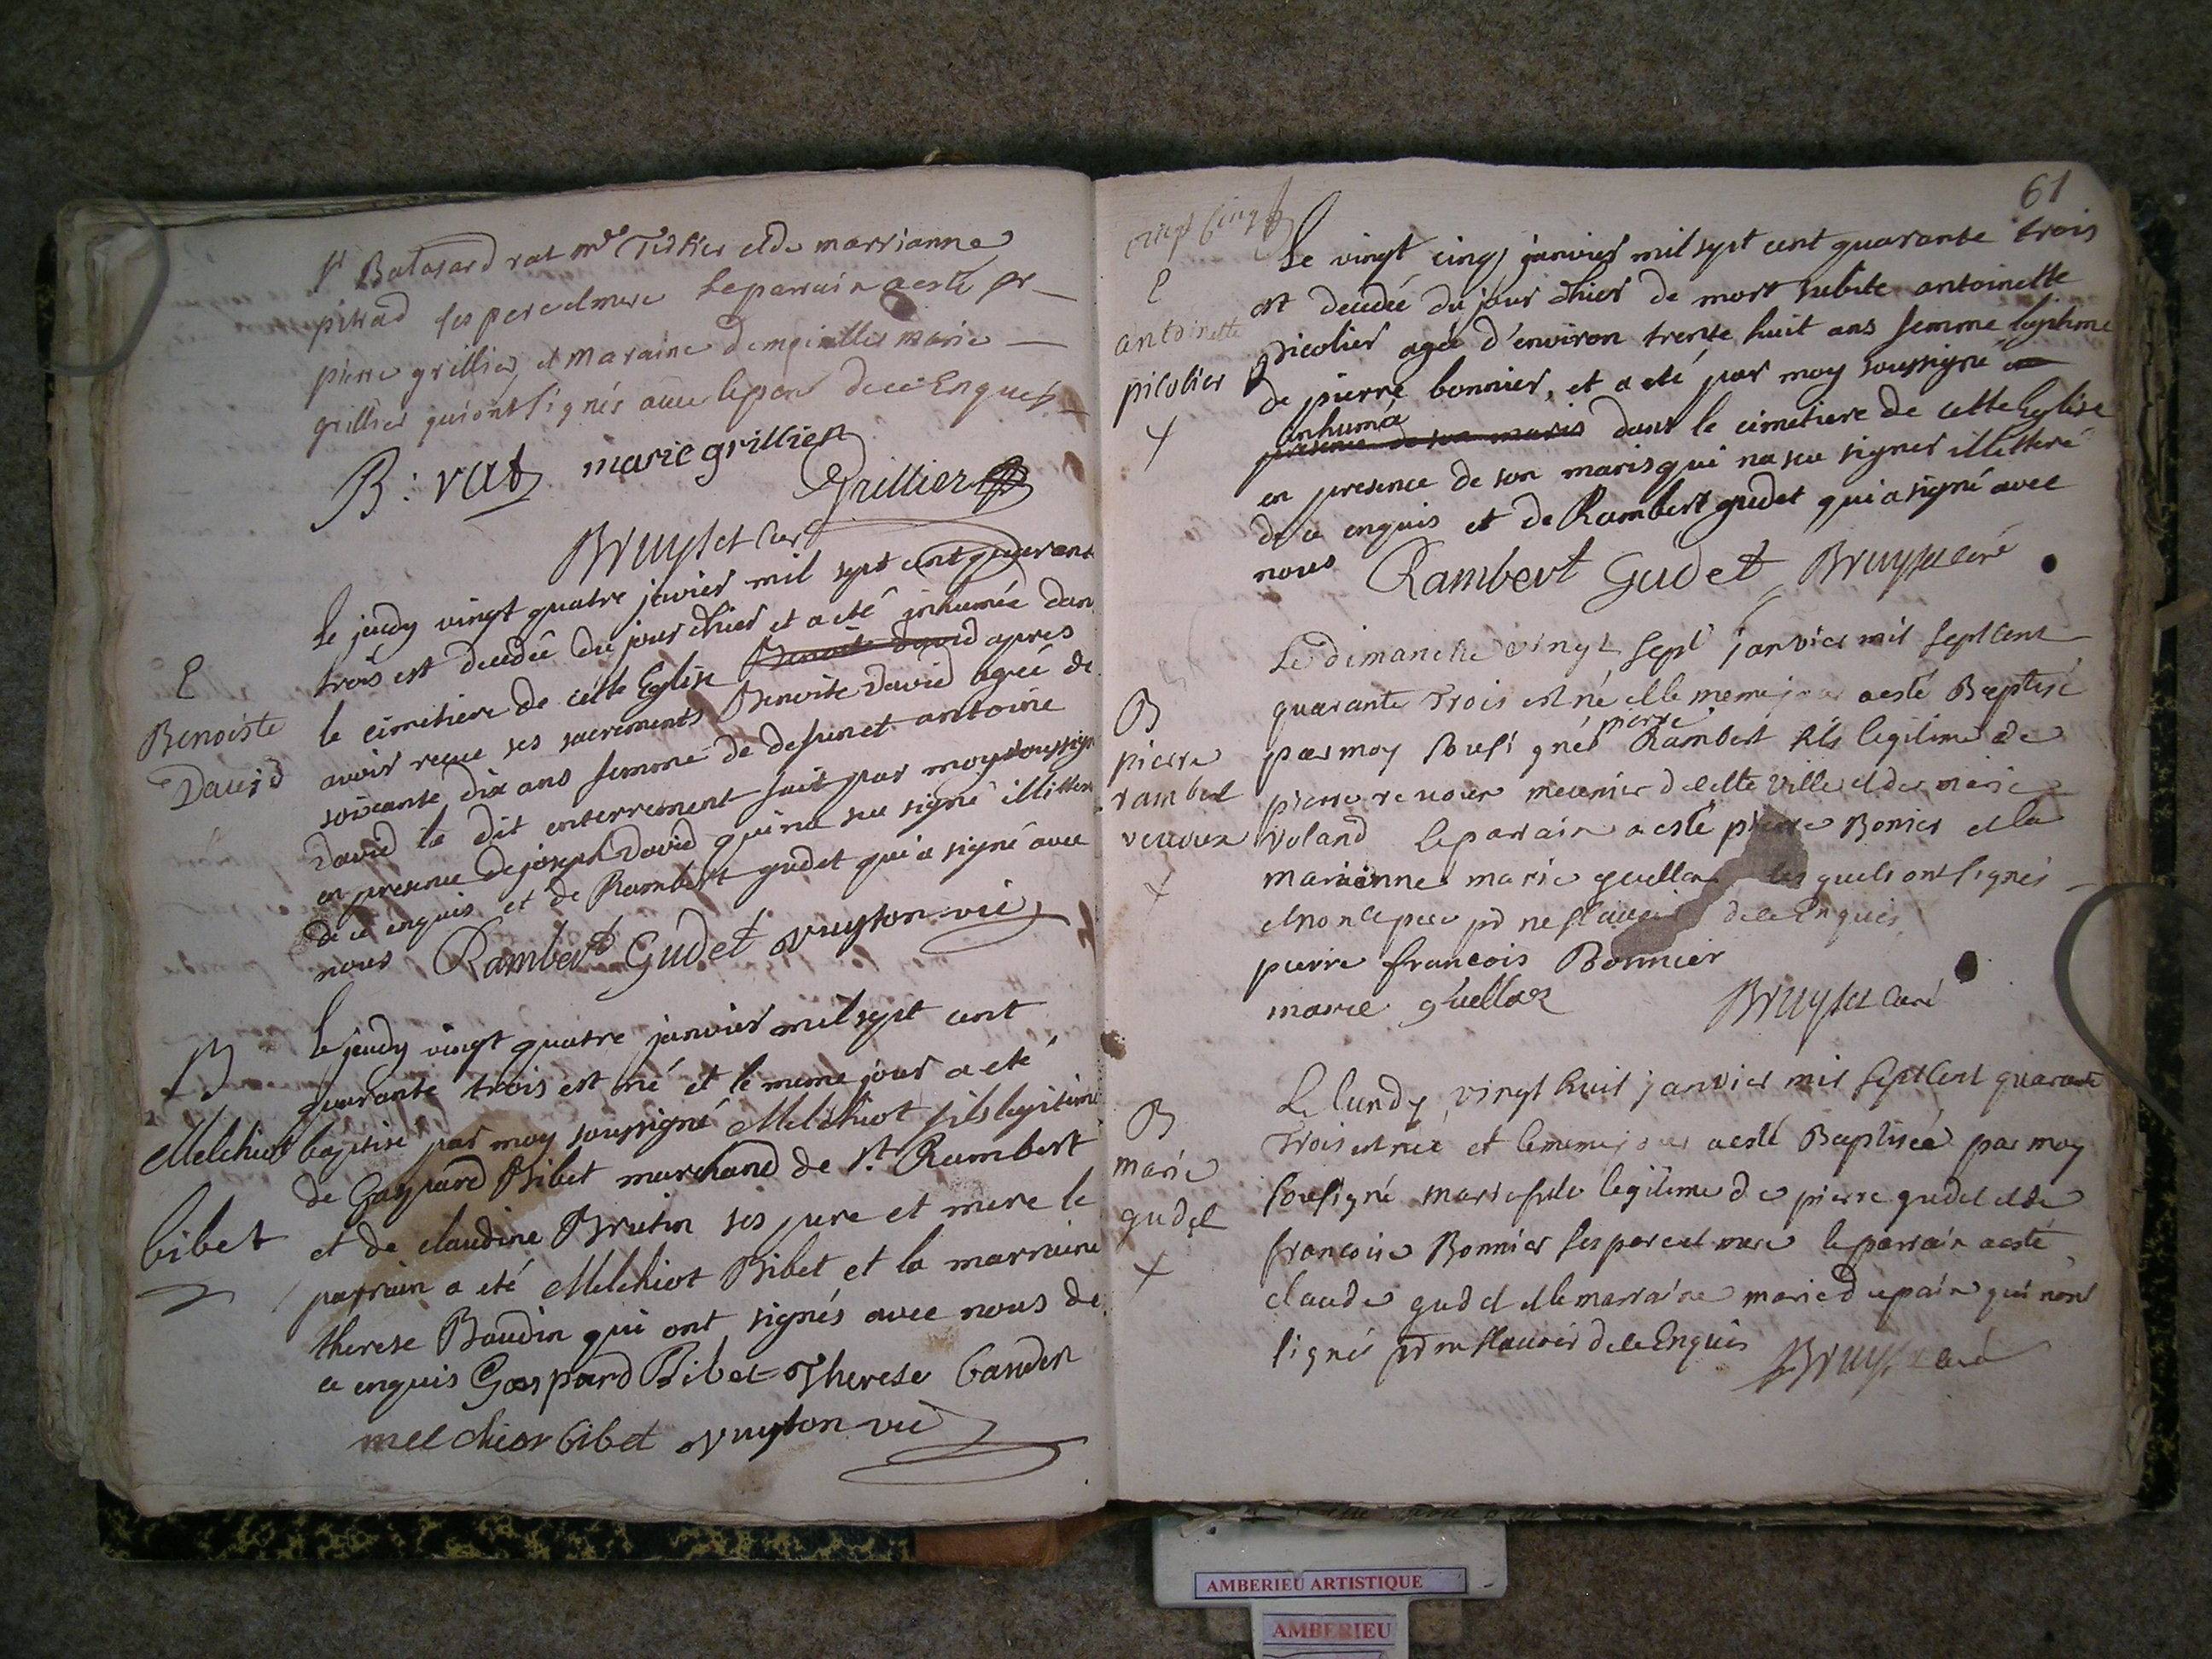 Sr Balasard rat md Tissier et de marrianne
pitrad ses pere et mere le parrain a esté sr
pierre grillier et maraine demoiselle marie
grillier qui ont signés avec le pere de ce Enquis
B: rat marie grillier
Grillier
Bruyset curé
le jeudy vingt quatre jenvier mil sept cent quarante
trois est decedée du jour d'hier et a eté inhumée dans
E
le cimetiere de cette Eglise Benoite david apres
Benoiste
avoir reçue ses sacrements Benoite David agée de
David
soixante dix ans femme de defunct antoine
David le dit enterrement fait par moy soussigné
en presence de joseph David qui na sçu signé illitteré
de ce enquis et de Rambert gudet qui a signé avec
nous Rambert Gudet vuyton vic
B
le jeudy vingt quatre janvier mil sept cent
quarante trois est né et le meme jour a eté
Melchiot baptisé par moy soussigné Melchiot fils legitime
de Gaspard Bibet marchand de St Rambert
bibet
et de claudine Brutin ses pere et mere le
parrain a eté Melchiot Bibet et la marraine
therese Baudin qui ont signés avec nous de
ce enquis Gaspard Bibet Therese baudin
melchior bibet vuyton vic
61
vingt cinq
Le vingt cinq janvier mil sept cent quarante trois
E
est decedée du jour d'hier de mort subite antoinette
antoinette
picolier
picolier agée d'environ trente huit ans femme legitime
de pierre bonnier, et a eté par moy soussigné en
inhumé
presence de son maris dans le cimetiere de cette Eglise
en presence de son maris qui na sçu signer illitteré
de ce enquis et de Rambert gudet qui a signé avec
nous Rambert Gudet Bruyset curé
Le dimanche vingt sept janvier mil sept cent
quarante trois est né et le meme jour a esté Baptisé
B
pierre
par moy sousigné pierre Rambert fils legitime de
rambert
pierre venoux meunier de cette ville et de marie
venoux
Voland le parrain a esté pierre Bonier et la
maraienne marie guellaz les quels ont signés
et non le pere pr ne sçavoir de ce Enquis
pierre francois Bonnier
marie guellaz Bruyset curé
Le lundy vingt huit janvier mil sept cent quarante
B
trois est née et le meme jour a esté Baptisée par moy
marie
sousigné marie fille legitime de pierre gudet et de
gudet
francoise Bonnier ses pere et mere le parrain a esté
claude gudet et la marraine marie dupain qui n'ont
signés pr ne sçavoir de ce Enquis Bruyset curé
AMBERIEU ARTISTIQUE
AMBERIEU